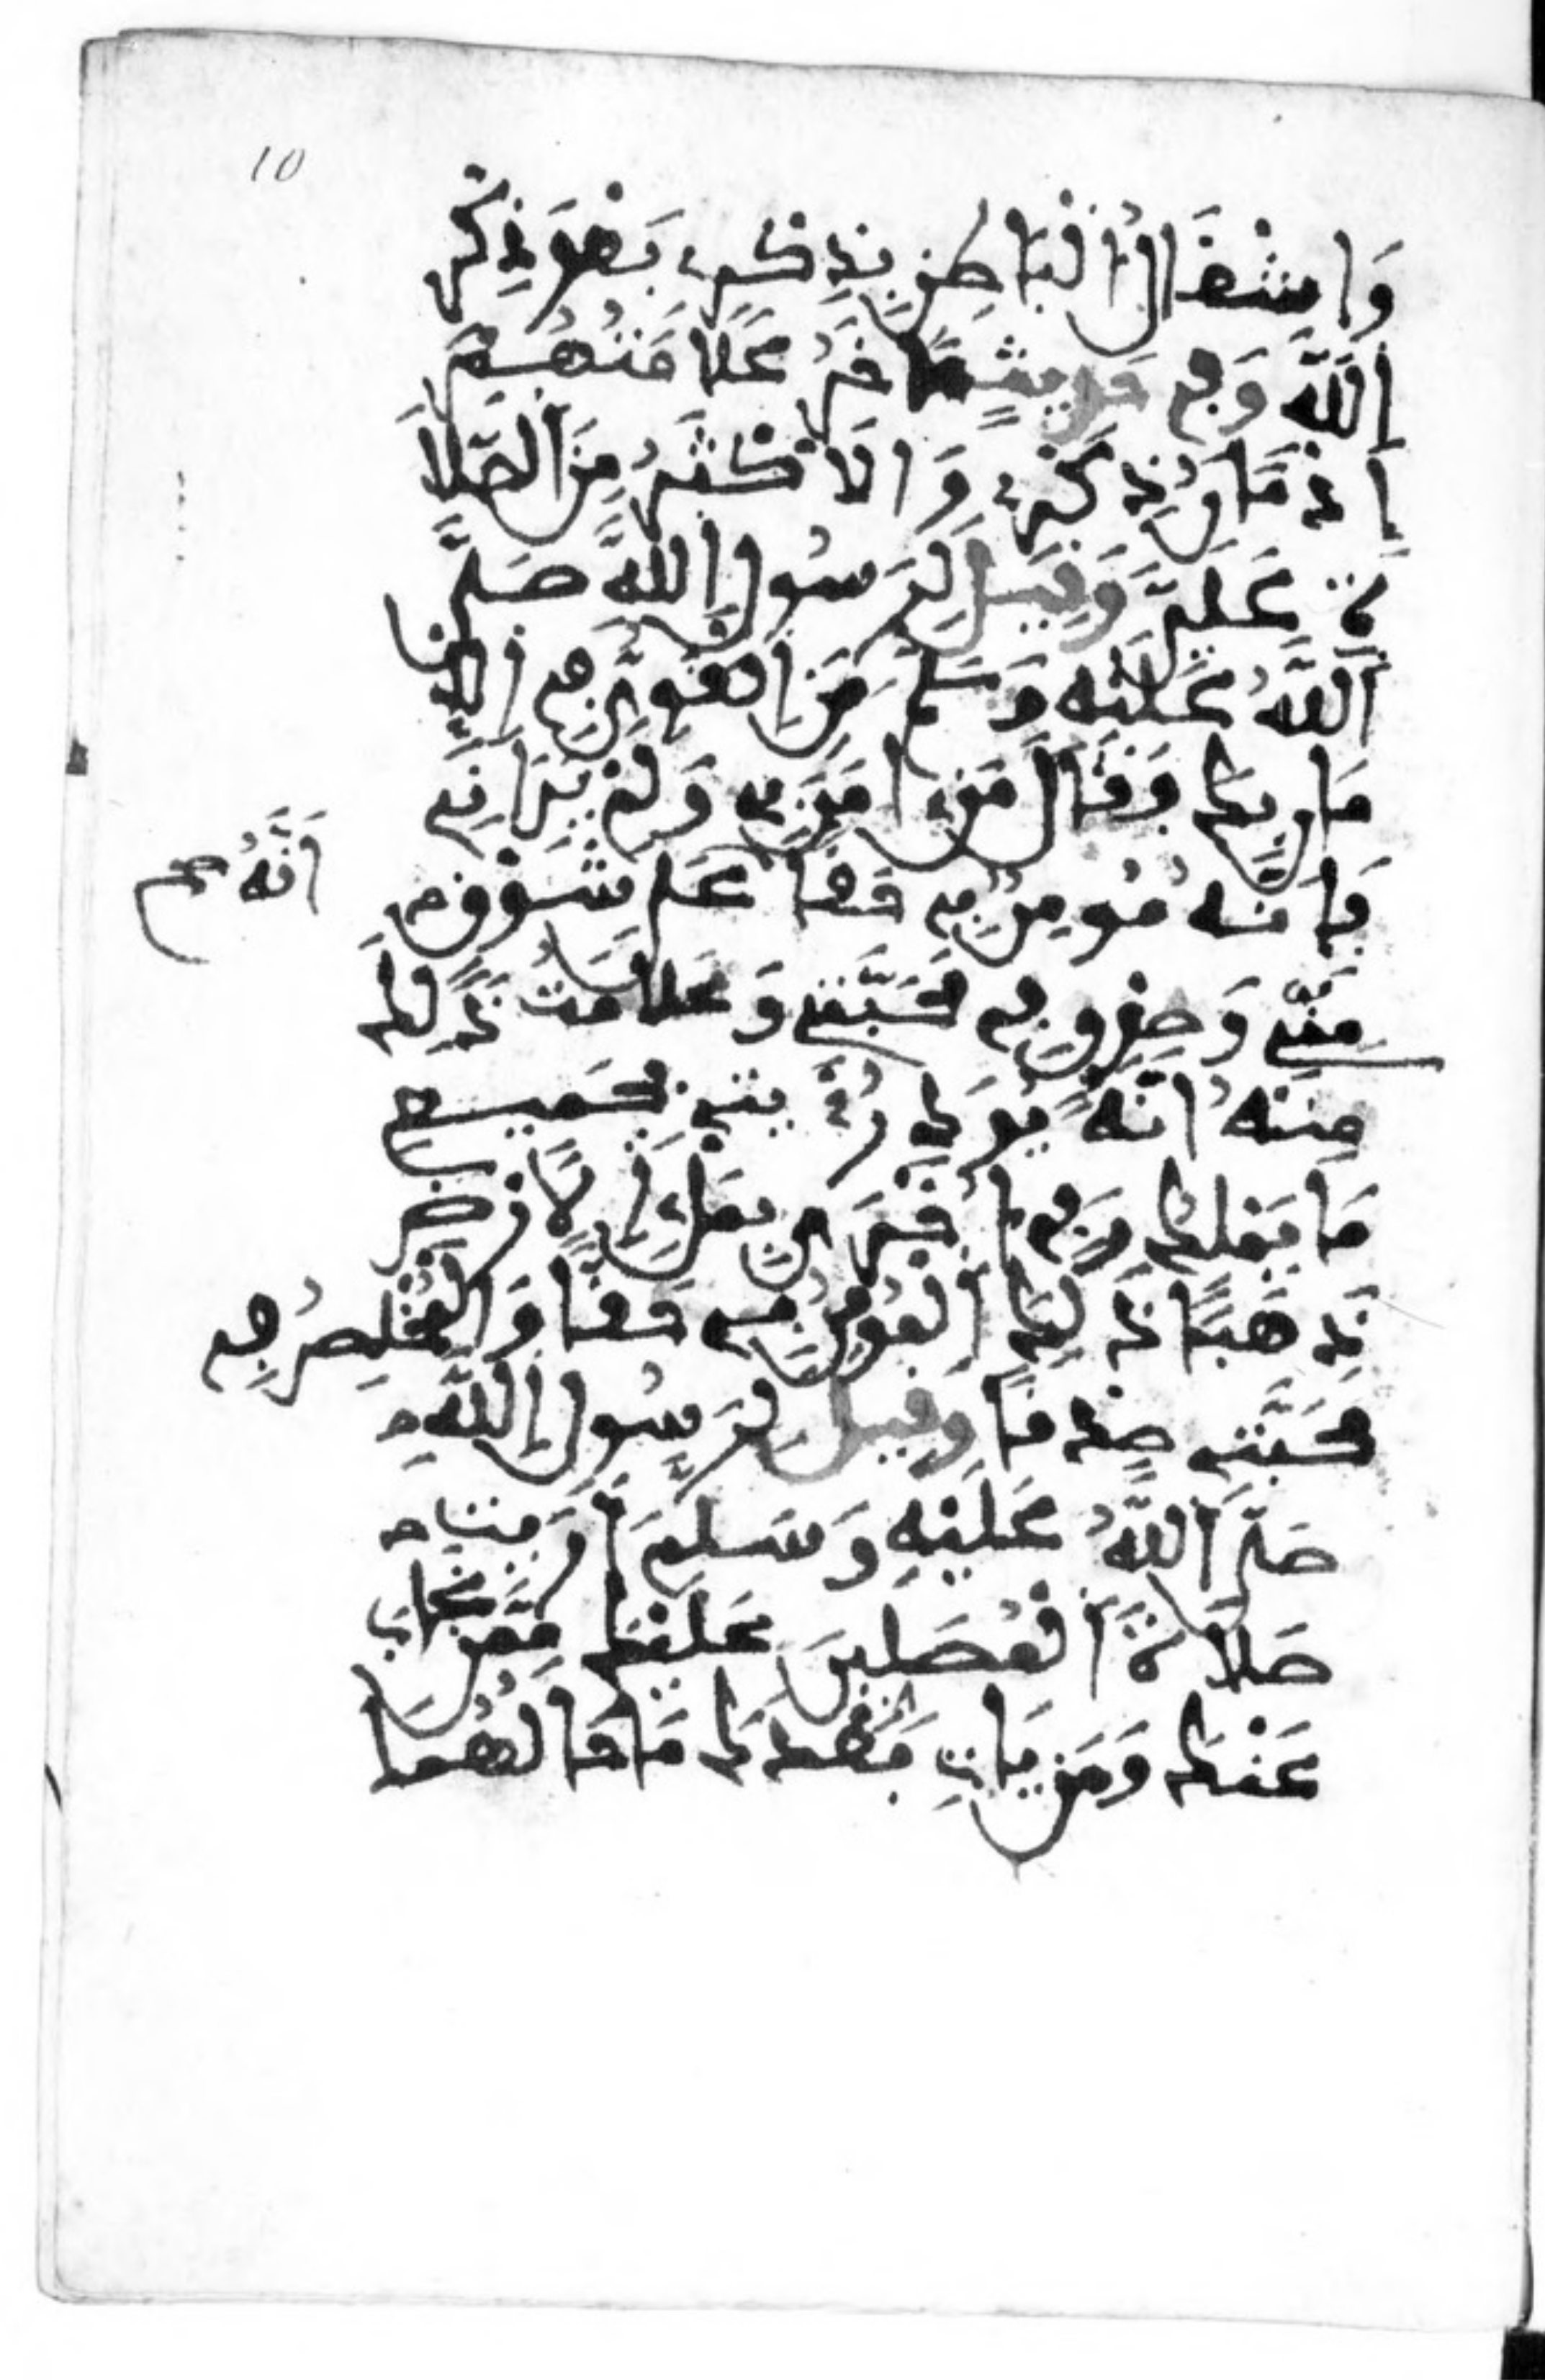 10
وَاشْغَالُ الْبَاطِنِ بِذِكْرِے بَعْدَ ذِكْرِ
اِللَّهِ وَفِے حَدِيثٍ اخَرُ عَلَامَتُهُمْ
اِدْمَانِ ذِكْرِے وَالاكْثَرُ مِنَ الصَّلَا
ةِ عَلَيَّ وَقِيلَ لِرَسُولِ اِللَّهِ صَلَّي
اَللَّهُ عَلَيْهِ وَسَلَّمَ مَنِ الْقَوِيُّ فِے الايمَا
نِ بِكَ فَقَالَ مَنَ امَنَ بِے وَلَمْ يَرَانِے
فَإنَّهُ مُومِنٌ بِے حَقا عَلَي شَوْقٍ
اَنَّهُ
مِنِّے وَصِدْقٍ فِے مَحَبَّتِے وَعَلَامَتُ ذَلِكَ
مِنْهُ اَنَّهُ يَوَدُّ رُؤْيَتِے بِجَمِيعِ
مَا يَمْلِكُ وَفِے اخْرَى بِمَلْءِ اِلَارْضِ
ذَهَبًا ذَلِكَ اَلْمُومِنُ بِے حَقا وَالْمُخْلِصُ فِے
مَحَبَّتِے صِدْقا وَقِيلَ لِرَسُولِ اِللَّهِ
صَلَّي اَللَّهُ عَلَيْهِ وَسَلَّمَ اَرَايْتَ
صَلَاةَ اَلْمُصَلِينَ عَلَيْكَ مِمَّنْ غَابَ
عَنْكَ وَمَن يَاتِے بَعْدَكَ مَا حَالُهُمَا